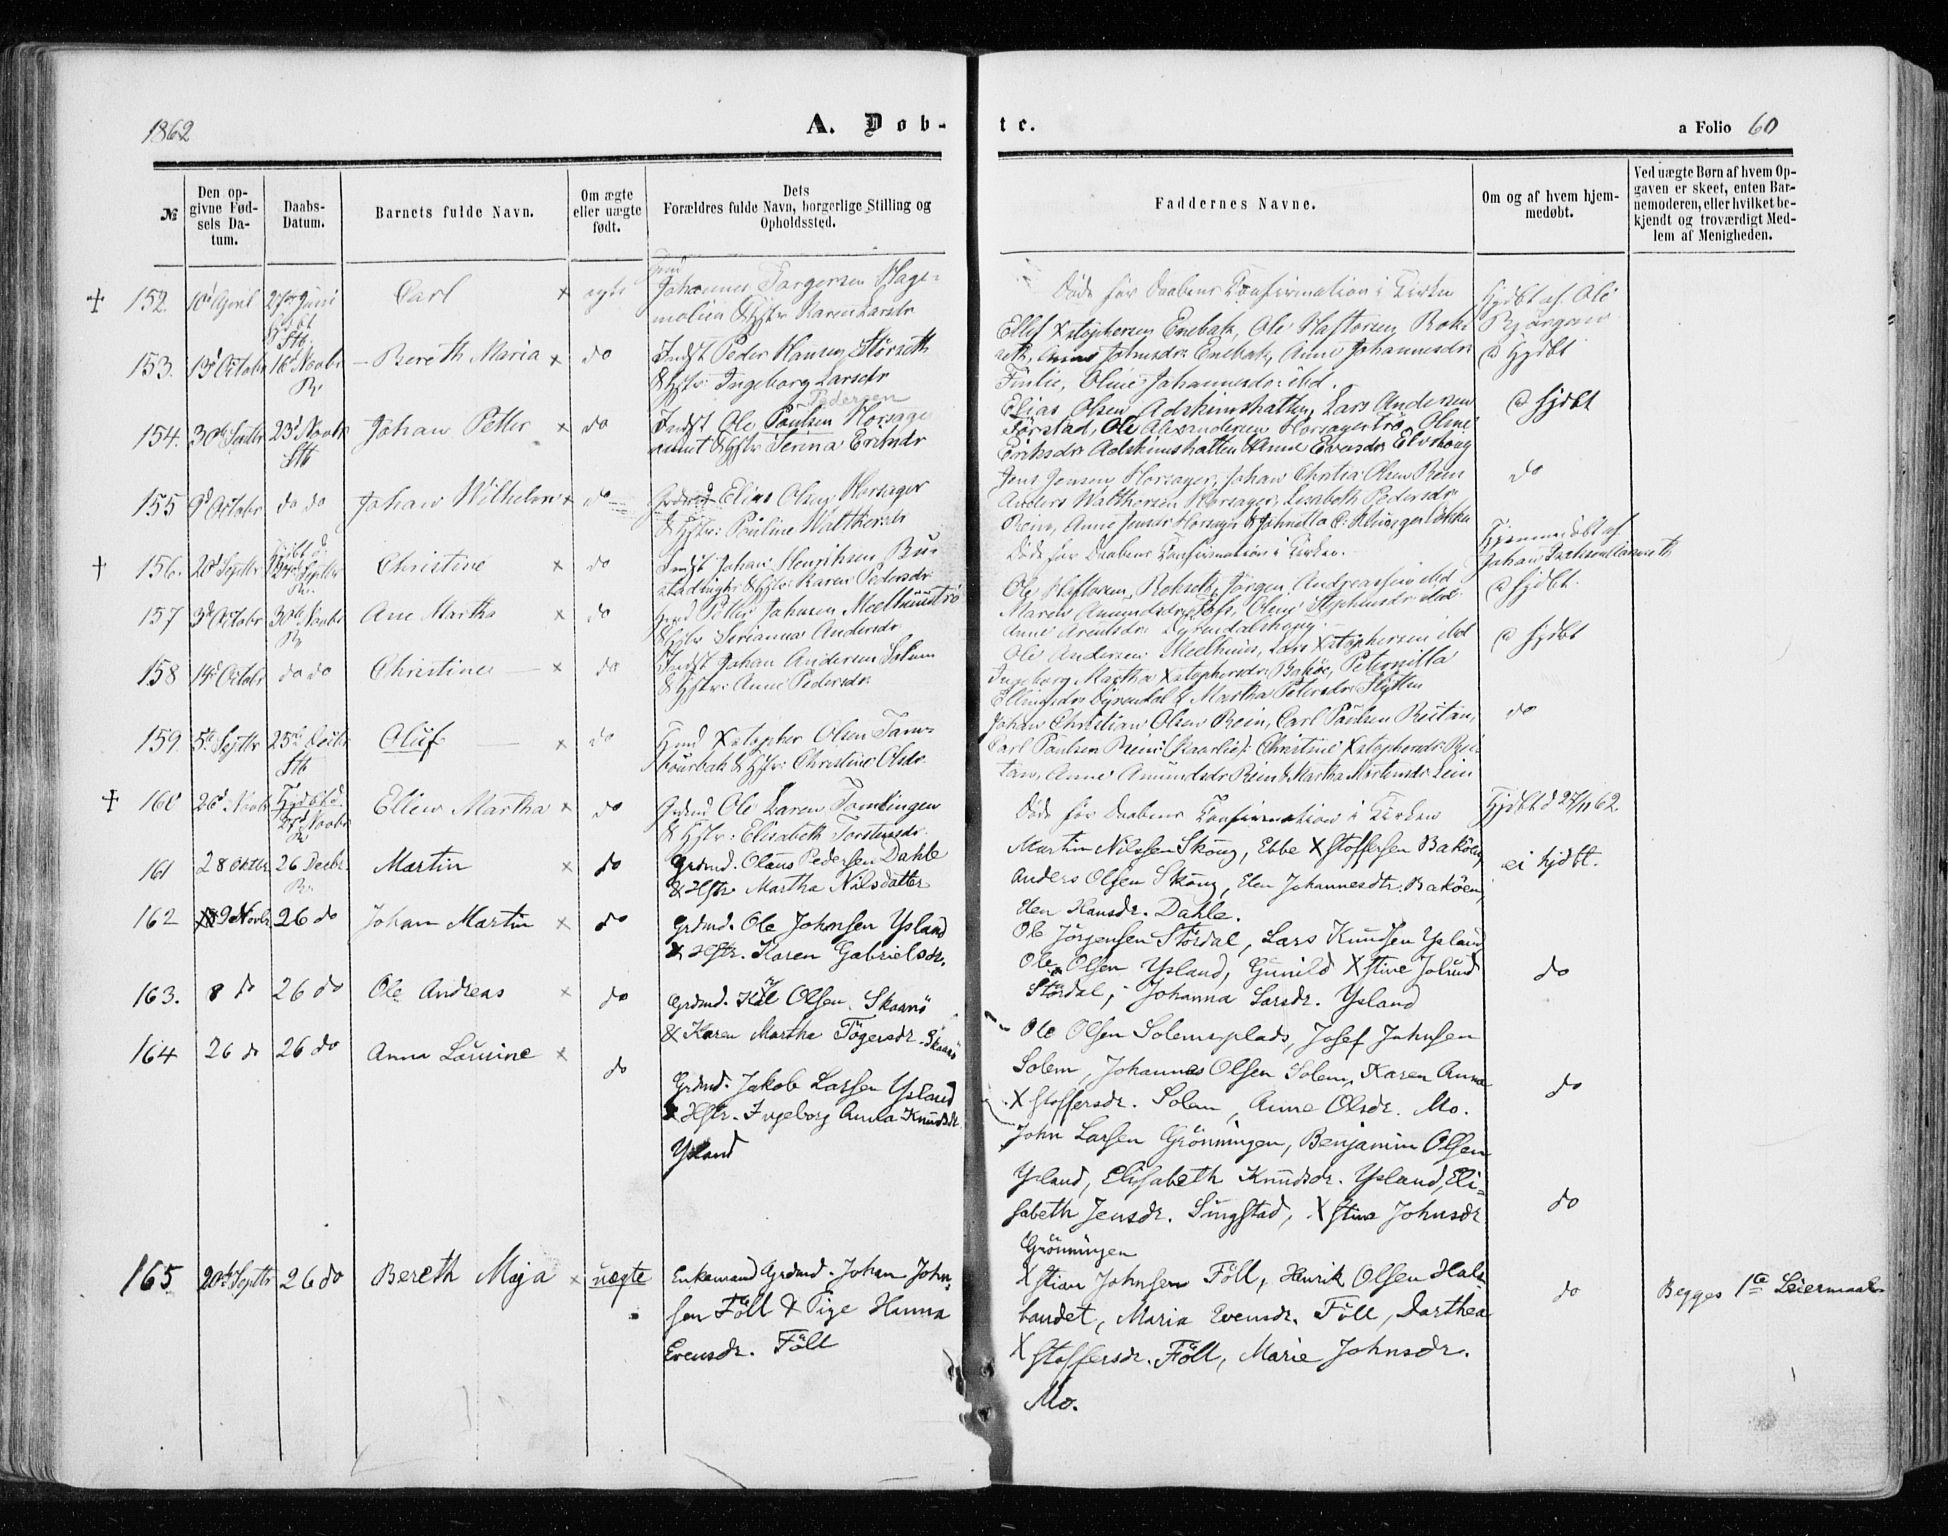 1862
A. Døb-
te.
a Folio 60
№
Den op-
givne Fød-
sels Da-
tum.
Daabs-
Datum.
Barnets fulde Navn.
Om ægte
eller uægte
født.
Dets
Forældres fulde Navn, borgerlige Stilling og
Opholdssted.
Faddernes Navne.
Om og af hvem hjem-
medøbt.
Ved uægte Børn af hvem Op-
gaven er skeet, enten Bar-
nemoderen, eller hvilket be-
kjendt og troværdigt Med-
lem af Menigheden.
+ 152. 10d April 27de Juni
Carl × ægte
Johannes Torgersen Hage-
Karen Larsdr
Døde før Daabens Confirmation i Kirken
Hjdbt af Ole
Bjørgan
153. 13d Octobr 16d Novbr
Br
— Bereth Maria × do
Indst Peder Hansen Størseth
& Hstr: Ingeborg Larsdr
Ellef Xstophersen Enebak, Ole Haftorsen Rok-
seth, Johnsdr Enebak, Anne Johannesdr
Finlie, Oline Johannesdr ibd.
@ Hjdbt
154. 30te Septbr 23d Novbr
Stb
Johan Petter × do
Pedersen
Indst Ole Paulsen Horsager
& Hstr Serina Eriksdr
Elias Olsen Adskimshatten, Lars Andersen
Førstad, Ole Alexandersen Horsagertrø, Oline
Eriksdr Adskimshatten & Anne Evensdr Elvshaug
@ Hjdbt
155 9d Octobr do do
Johan Wilhelm × do
Elias Olsen Horsager
& Hstr: Pauline Walthersdr
Jens Jensen Horsager, Johan Christia Olsen Rein
Anders Walthersen Horsager, Lisabeth Pedersdr
Rein, Anne Jensdr Horsager &
do
+ 156. 20d Septbr
Christine × do
Indst Johan Henriksen Ru-
stadengh & Hstr Karen Pedersdr
Døde før Daabens Confirmation i Kirken.
Hjemmedøbt af
Johan
157 3d Octobr 30te Novbr
Br
Ane Martha × do
Petter Johnsen Melhuustrø
& Hstr Serianna Andersdr
Ole Haftorsen Rokseth, Jørgen Andreassen ibd
Maren Amundsdr Foss, Oline Stephensdr ibd
Anne Arentsdr Dyrendalshaug
@ Hjdbt.
158 14d Octobr do do
Christine — × do
Indst Johan Andersen Solem
& Hstr: Anne Pedersdr
Ole Andersen Melhuus, Lars Xstophersen ibd
Ingeborg Martha Xstophersdr Bakøe, Peternilla
Ellingsdr Dyrendal & Martha Petersdr Flytten
@ Hjdbt
159 5te Septbr 25d Decbr
Stb
Oluf — × do
Xstopher Olsen Tam-
bourbak & Hstr: Christine Olsdr
Johan Christian Olsen Rein, Carl Paulsen Reitan,
Carl Paulsen Rein (Haarlie): Christine Xstophersdr Rei-
tan, Anne Amundsdr Rein & Martha Mortensdr Lein
do
+ 160 26d Novbr Hjdbt d
27d Novbr
Ellen Martha × do
Ole Larsen Tamlingen
& Hstr: Elisabeth Torstensdr
Døde før Daabens Confirmation i Kirken
Hjdbt d 27/11 62.
161 28 Oktbr 26 Decbr
Br.
Martin × do
Grdmd. Olaus Pedersen Dahle
& Hstr Martha Nilsdatter
Martin Nilssen Skaug, Ebbe Xstoffersen Bakøen,
Anders Olsen Skaug, Elen Johannesdtr. Bakøen,
Elen Hansdr. Dahle.
ei hjdbt.
162 9 Novbr 26 do
Johan Martin × do
Grdmd. Ole Johnsen Ysland
& Hstr. Karen Gabrielsdr.
Ole Jørgensen Stördal, Lars Knudsen Ysland
Ole Olsen Ysland, Gunild Xstine
Stördal, Johanna Larsdr. Ysland
do
163. 8 do 26 do
Ole Andreas × do
Grdmd. Olsen Skarnö
& Karen Martha Tögersdr. Skarnö
Ole Olsen Solemsplads, Josef Johnsen
Solem, Johannes Olsen Solem, Karen Anna
Xstoffersdr. Solem, Anne Olsdr. Mo.
do
164 26 do 26 do
Anna Laurine ×
do
Grdmd. Jakob Larsen Ysland
& Hstr. Ingeborg Anna Knudsdr
Ysland
John Larsen Grönningen, Benjamin Olsen
Ysland, Elisabeth Knudsdr. Ysland, Eli-
sabeth Jensdr. Singstad, Xstine Johnsdr
Grönningen
do
165 20de Septbr 26 do
Bereth Maja × uægte
Enkemand Grdmd. Johan John-
sen Föll & Pige Hanna
Evensdr. Föll
Xstian Johnsen Föll, Henrik Olsen Hals-
bandet, Maria Evensdr. Föll, Darthea
Xstoffersdr. Föll, Marie Johnsdr.
Mo.
do
Begges 1te Leiermaal